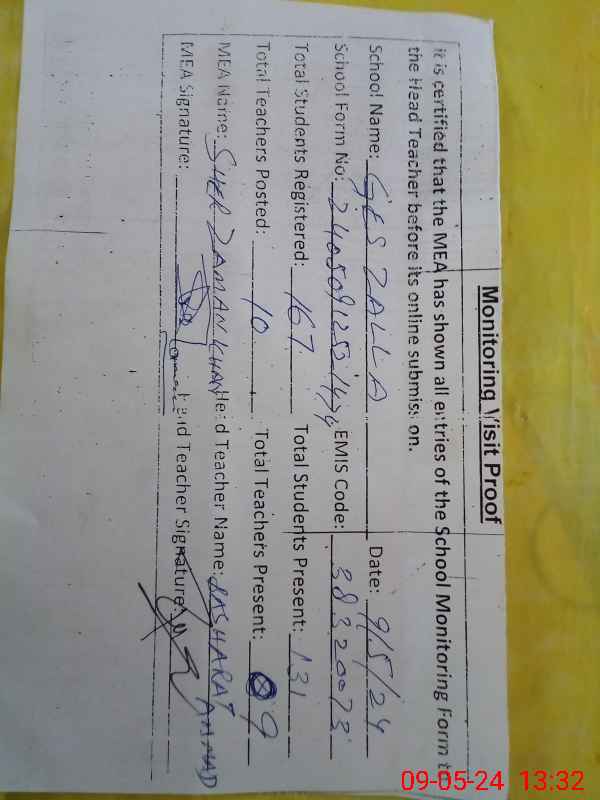 Monitoring Visit Proof
it is certified that the MEA has shown all entries of the School Monitoring Form t
the Head Teacher before its online submission.
School Name: GES ZALLA Date: 9/5/24
School Form No: EMIS Code: 38320073
Total Students Registered: 167 Total Students Present: 131
Total Teachers Posted: 10 Total Teachers Present: 9
MEA Name: SHER ZAMAN KHAN Head Teacher Name: BASHARAT AHMAD
MEA Signature: Head Teacher Signature:
09-05-24 13:32